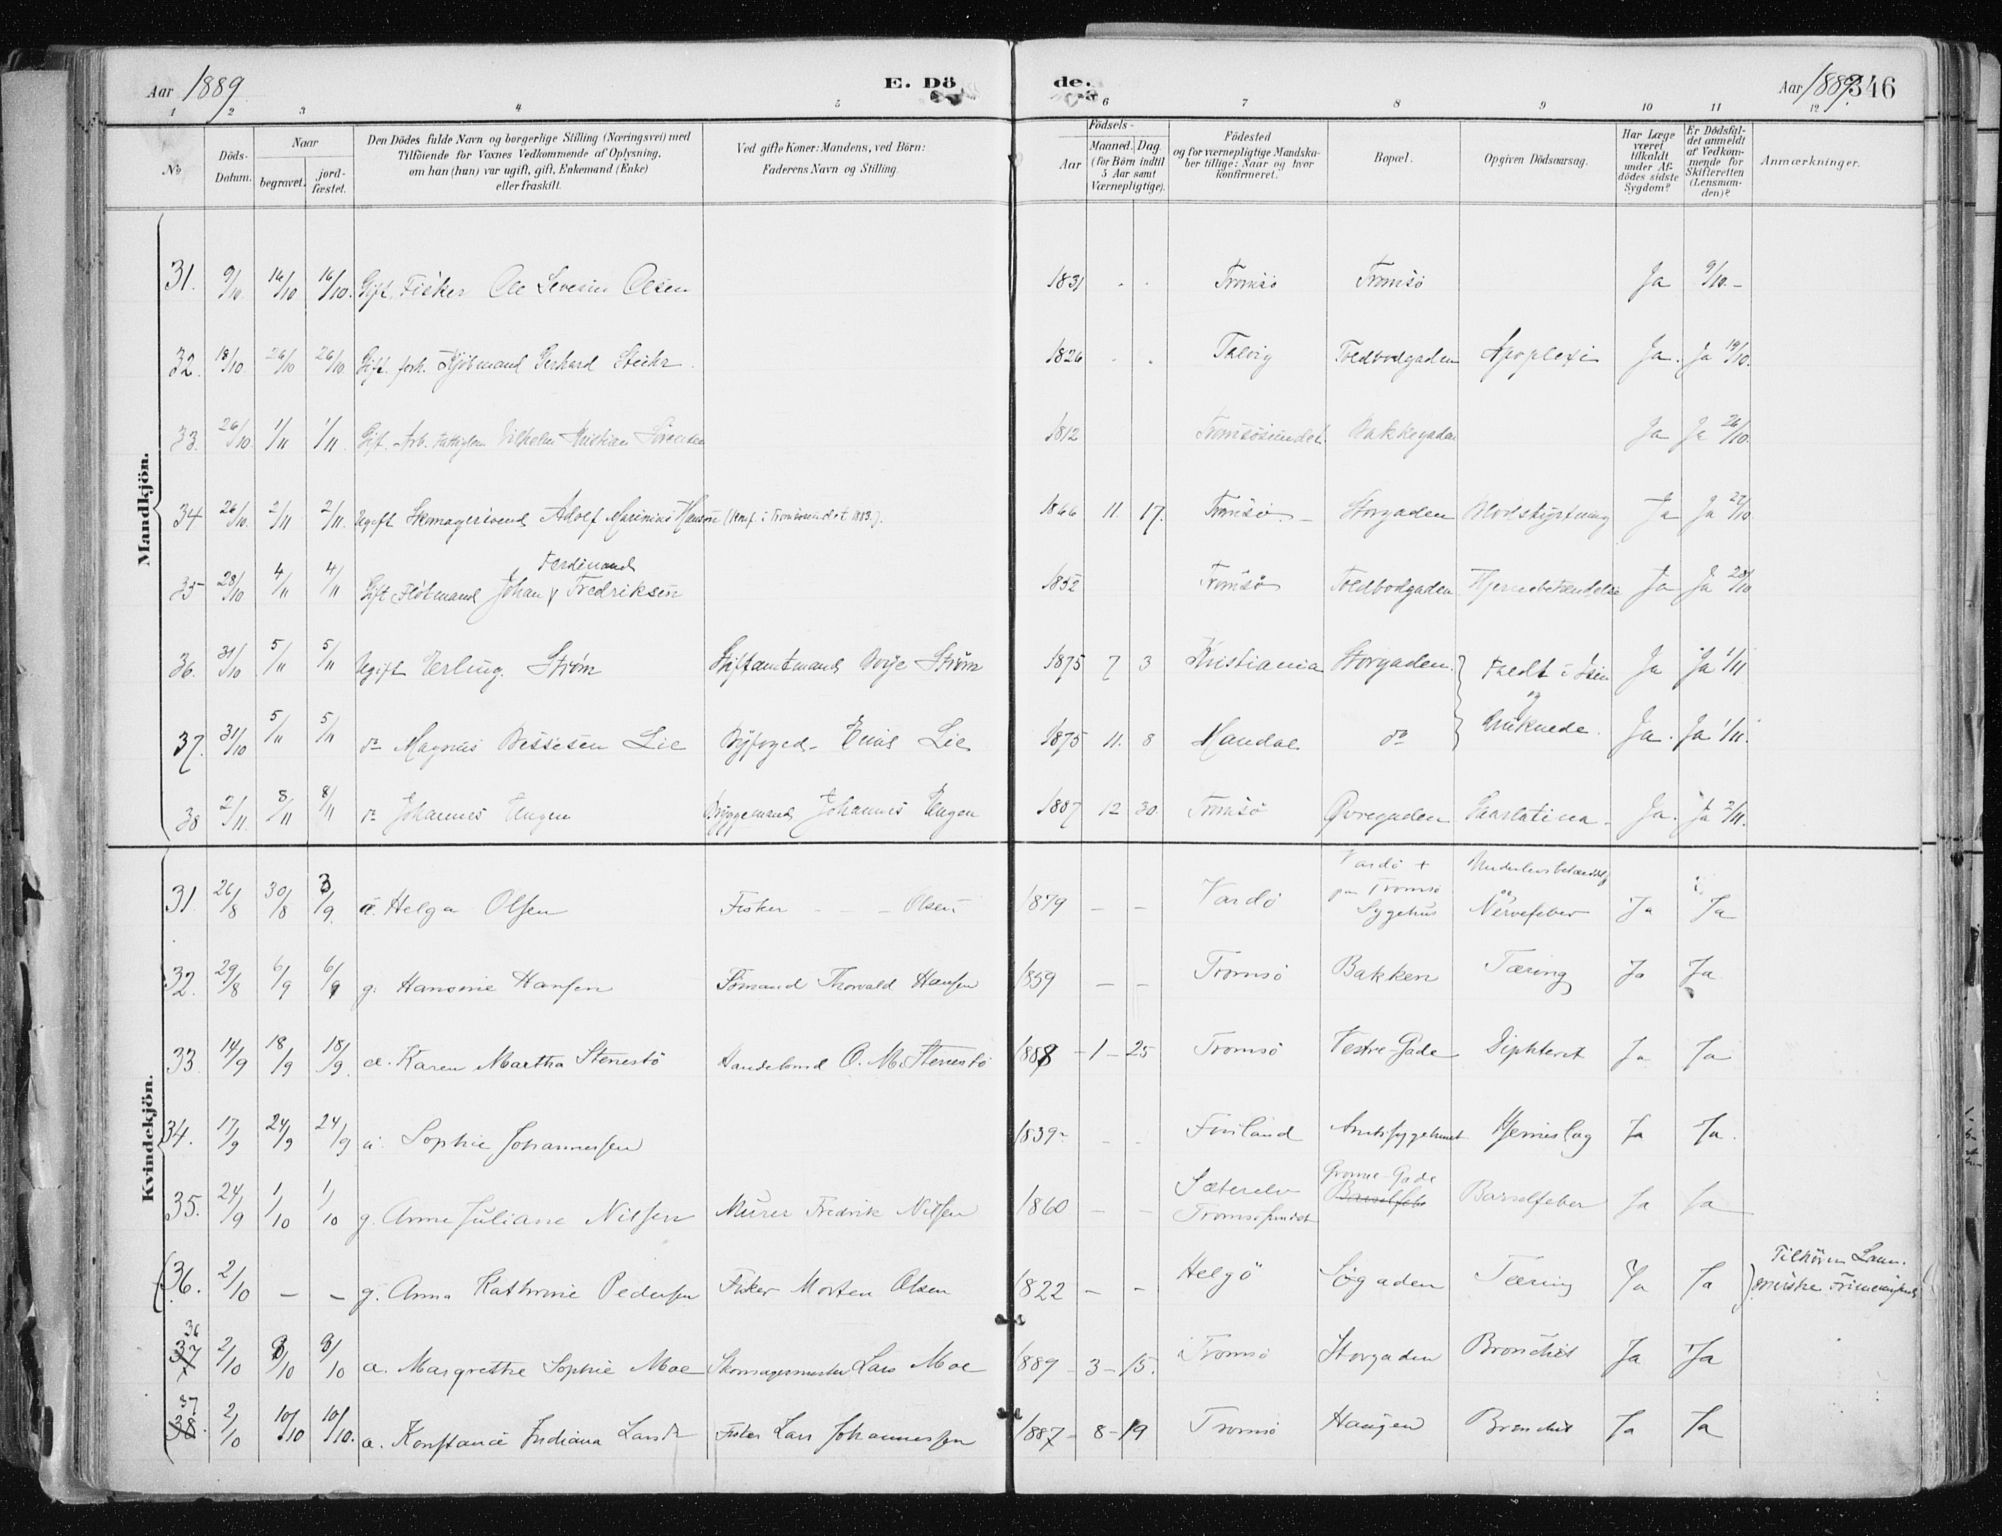 Aar 1889
E. Dö
de.
Aar 1889.
346
1 2 3 4 5 6 7 8 9 10 11 12
No.
Döds-
Datum.
Naar
begravet.
jord-
fæstet.
Den Dödes fulde Navn og borgerlige Stilling (Næringsvei) med
Tilföiende for Voxnes Vedkommende af Oplysning,
om han (hun) var ugift, gift, Enkemand (Enke)
eller fraskilt.
Ved gifte Koner: Mandens, ved Börn:
Faderens Navn og Stilling.
Födsels-
Aar
Maaned. Dag
(for Börn indtil
5 Aar samt
Værnepligtige).
Födested
og for værnepligtige Mandska-
ber tillige: Naar og hvor
Konfirmeret.
Bopæl.
Opgiven Dödsaarsag.
Har Læge
været
tilkaldt
under Af-
dödes sidste
Sygdom?
Er Dödsfal-
det anmeldt
af Vedkom-
mende for
Skifteretten
(Lensman-
den)?
Anmærkninger.
Mandkjön.
31. 9/10. 16/10 16/10. Gift. Fisker Ole Severin Olsen 1831 . . Tromsö Tromsö Ja 9/10.-
32. 18/10 26/10 26/10 Gift. forh. Kjöbmand Gerhard Stuhr. 1826 . . Talvig Toldbodgaden Apoplexi Ja. Ja 19/10.
33. 26/10 1/11 1/11. Gift. Arb. Fattiglem Vilhelm Kristian Sörensen 1812 Tromsösundet. Bakkegaden Ja Ja 26/10.
34 26/10. 2/11 2/11. Ugift Skomagersvend Adolf Marinius Hansen (Konf. i Tromsøsundet 1883.). 1866 11. 17. Tromsö. Storgaden Blodstyrtning Ja Ja 27/10
Ferdinand
35 28/10 4/11 4/11 Gift Flötmand Johan Fredriksen 1852 Tromsö Toldbodgaden Hjernebetændelse Ja Ja 28/10
36. 31/10 5/11 5/11 Ugift Erling Ström Stiftamtmand Boye Ström 1875 7 3 Kristiania Storgaden. Faldt i Isen Ja Ja 1/11
og
37. 31/10 5/11 5/11 do Magnus Bessesen Lie Byfoged Emil Lie 1875 11. 8 Mandal do druknede. Ja. Ja 1/11.
38 2/11. 8/11 8/11 do Johannes Ungen Bryggemand Johannes Ungen 1887 12 30. Tromsö Øvregaden Skarlatina. Ja. Ja 2/11.
Kvindekjön.
Vardö + Underlivsbetændelse
paa Tromsö og
31. 26/8 30/8 3/9 u. Helga Olsen Fisker - - - Olsen 1879 - - Vardö Sygehus Nervefeber Ja Ja
32. 29/8 6/9 6/9 g. Hansine Hansen Sömand Thorvald Hansen 1859 - - Tromsö Bakken Tæring Ja Ja
33. 14/9 18/9 18/9. u. Karen Martha Stenestö Handelsmd O. M. Stenestö 1888 - 1 - 25 Tromsö Vestre Gade Diphterit Ja Ja
34. 17/9 24/9 24/9 u. Sophie Johannessen 1839 - - Finland Amtssygehuset Hjerneslag Ja Ja.
Sæterelv Grønne Gade
35. 24/9 1/10 1/10 g. Anne Juliane Nilsen Murer Fredrik Nilsen 1860 - - Tromsösundet Barselfeb Barselfeber Ja Ja
36. 2/10 - - g. Anna Kathrine Pedersen Fisker Morten Olsen 1822 - - Helgö Søgaden Tæring Ja Ja Tilhörer Lam-
merske Frimenighed
36
37 2/10 8/10 8/10 u. Margrethe Sophie Moe Skomagermester Lars Moe 1889 - 3 - 15. Tromsö Storgaden Bronchit Ja Ja
37
38. 2/10 10/10 10/10. u. Konstance Indiana Larsdr Fisker Lars Johannessen 1887 - 8 - 19 Tromsö Haugen Bronchit Ja Ja